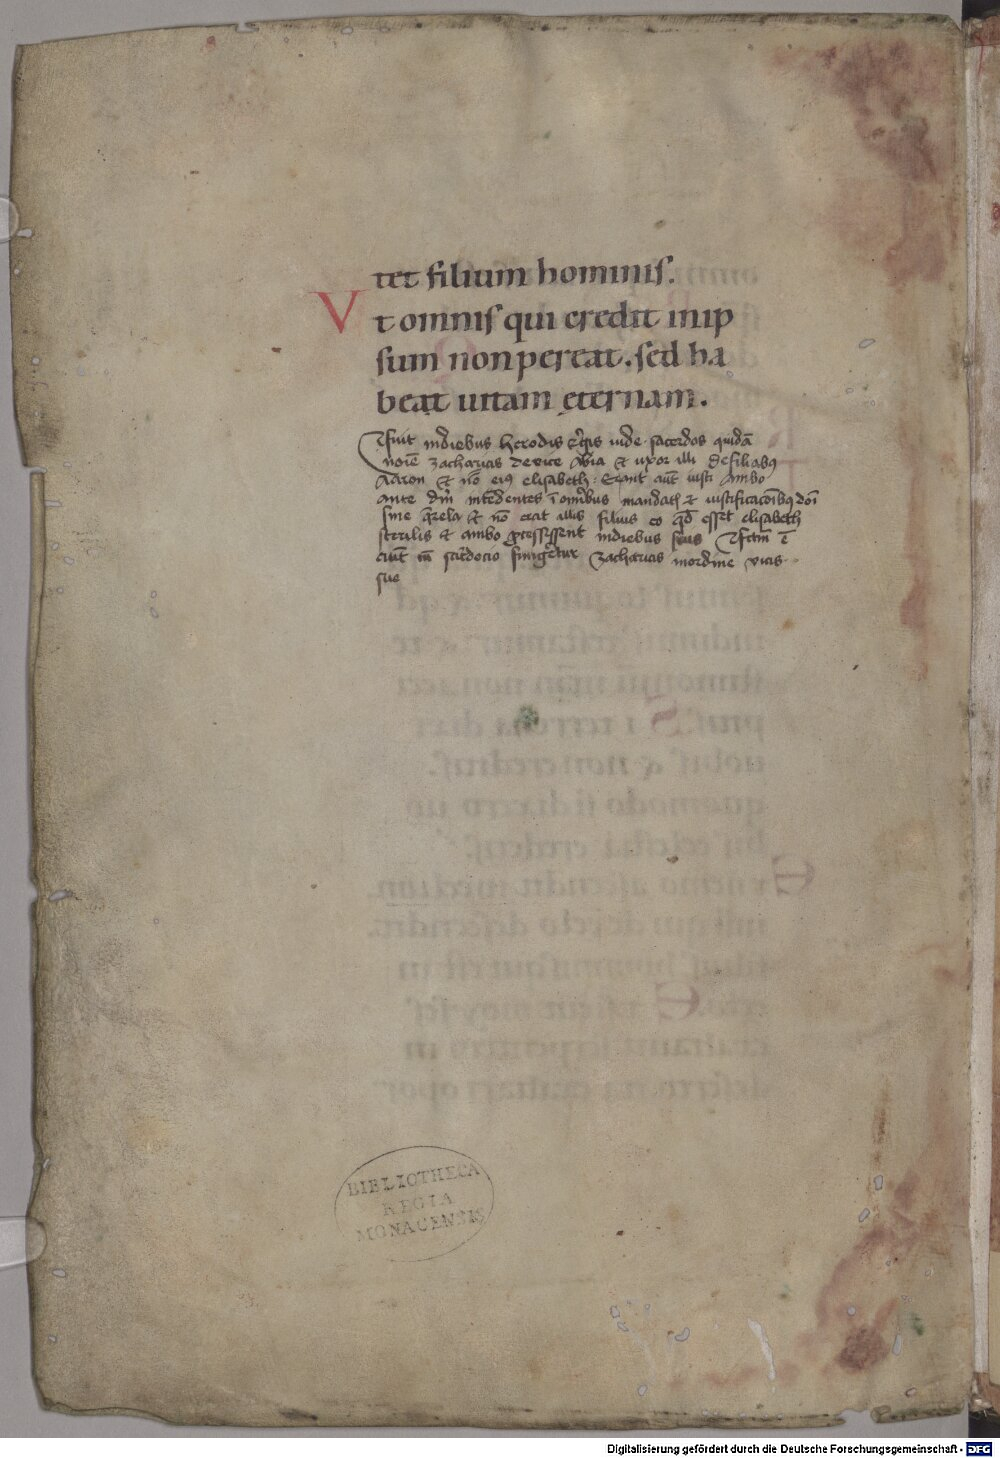 tet filium hominis.
Vt omnis qui credit in ip
sum non pereat. sed ha
beat uitam ęternam.
fuit indiebus herodis regis iude sacerdos quidā
noīe zacharias de vice Abia et uxor illi de filiabꝫ
Aaron et nō eiꝰ elisabeth. Erant aūt iusti Ambo
ante dm̄ incedentes ī omībus mandatis et iustificacōibꝫ dnī
sine q̄rela et nō erat illis filius eo qd̄ esset elisabeth
sterilis et ambo ꝓcessissent indiebus suis fctm̄ ē
aūt cū zacharias inordine vicis
sue
BIBLIOTHECA
REGIA
MONACENSIS
Digitalisierung gefördert durch die Deutsche Forschungsgemeinschaft - DFG